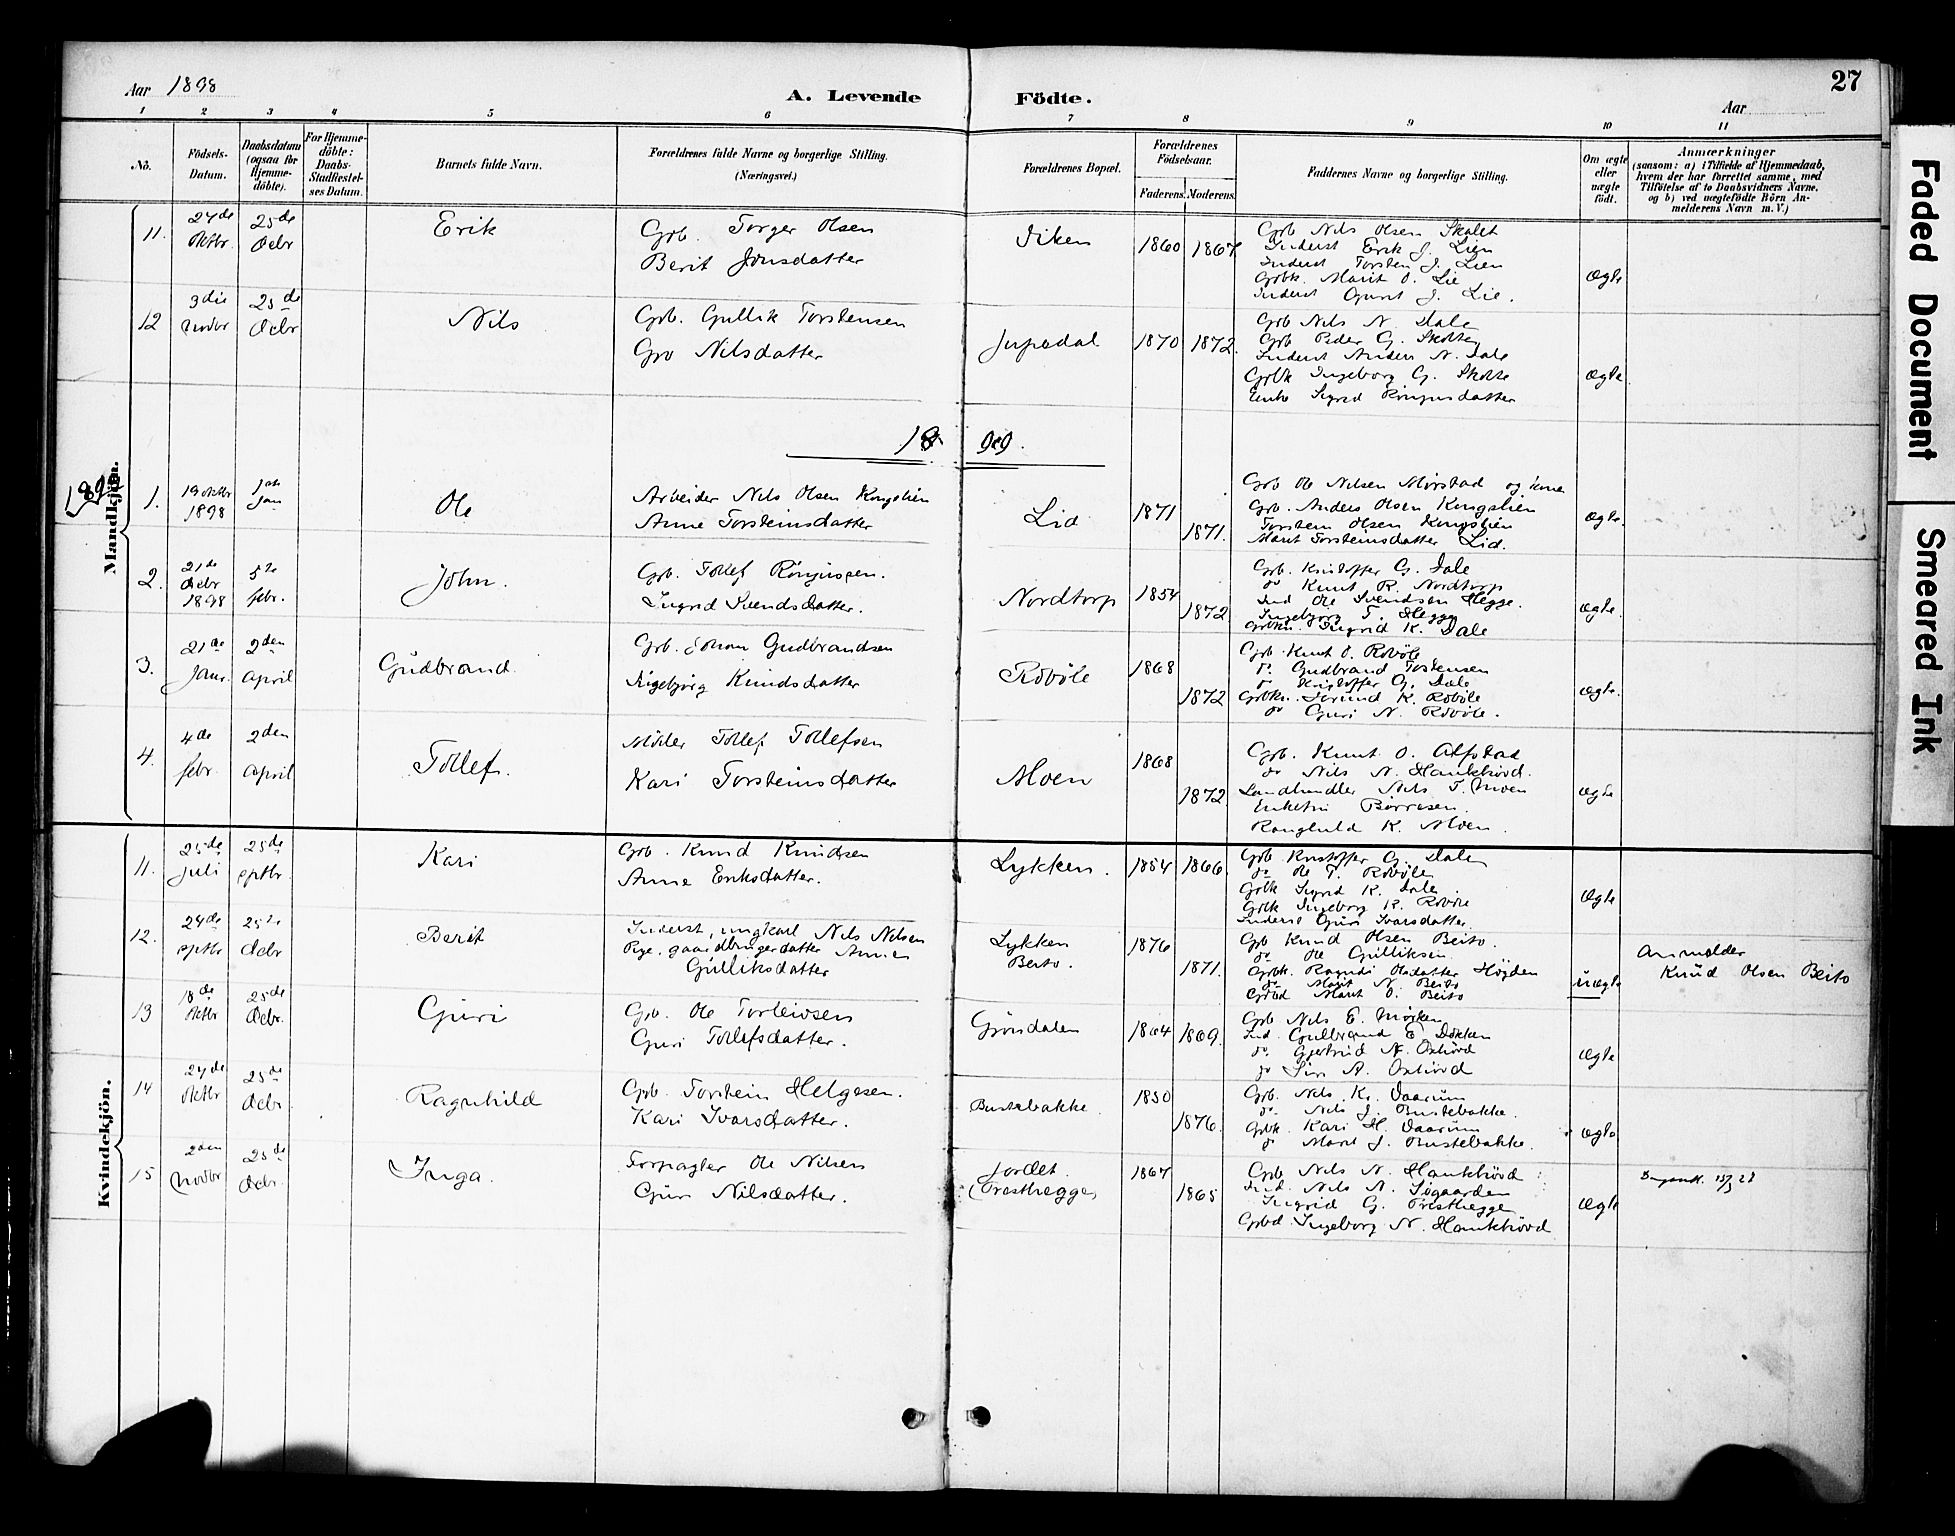 27
Aar 1898
A. Levende Födte.
Aar
1 2 3 4 5 6 7 8 9 10 11
No.
Födsels-Datum.
Daabsdatum (ogsaa for Hjemme-döbte).
For Hjemme-döbte: Daabs-Stadfæstel-ses Datum.
Barnets fulde Navn.
Forældrenes fulde Navne og borgerlige Stilling.
(Næringsvei.)
Forældrenes Bopæl.
Forældrenes Födselsaar.
Faderens. Moderens.
Faddernes Navne og borgerlige Stilling.
Om ægte eller uægte födt.
Anmærkninger
(saasom: a) i Tilfælde af Hjemmedaab,
hvem der har forrettet samme, med
Tilföielse af to Daabsvidners Navne,
og b) ved uægtefödte Börn An-
melderens Navn m. V.)
Mandkjön.
11. 24de Oktbr. 25de Decbr Erik
Grb. Torger Olsen
Berit Jonsdatter
1860 1867
Grb Nils Olsen Skalet
Inderst Erik J. Lien
Inderst Torsten J. Lien
Grbk. Marit O. Lie
Inderst Guri J. Lie.
Ægte
12 3die Novbr 25de Decbr Nils
Grb. Gullik Torstensen
Gro Nilsdatter
1870 1872.
Grb Nils N. Dale
Grb Peder G. Skolte
Inderst Anders N. Dale
Grbk Ingeborg G. Skolte
Enke Sigrid
Ægte
1899.
1899
1. 19 Oktbr 1898 1ste Jan Ole
Arbeider Nils Olsen Kongslien
Anne Torsteinsdatter
Lid
1871 1871.
Grb Ole Nilsen Mörstad og kone
Grb. Anders Olsen Kongslien
Torstein Olsen Kongslien
Marit Torsteinsdatter Lid.
Ægte.
2. 21de Decbr 1898 5te febr. John.
Grb. Tollef
Ingrid Svendsdatter.
Nordtorp
1854 1872
Grb. Kristoffer G. Dale
do Knut R. Nordtorp
Ind Ole Svendsen Hegge.
Ingebjørg T. Hegge
Grbkn. Ingrid K. Dale
Ægte.
3. 21de Janr. 2den April Gudbrand.
Grb. Johan Gudbrandsen
Ingebjørg Knudsdatter
Robøle
1868 1872
Grb. Knut O. Robøle
do. Gudbrand Tostensen
do Kristoffer G. Dale
Grbkn. Jørund K. Robøle
do Guri N. Robøle.
Ægte.
4. 4de febr. 2den April Tollef.
Møller Tollef Tollefsen
Kari Torsteinsdatter
Moen
1868 1872
Grb. Knut O. Alfstad
do Nils N. Haukhövd.
Landhandler Nils T. Moen
Børresen.
Ranghild K. Moen.
Ægte
Kvindekjön.
11. 25de juli 25de Sptbr Kari
Grb. Knud Knudsen
Anne Eriksdatter.
Lykken.
1854 1866
Grb Kristoffer G. Dale
do Ole T. Robøle
Grbk Sigrid K. Dale
Grbk Ingeborg K. Robøle
Inderst Guri Ivarsdatter.
Ægte
12. 24de Sptbr 25de Decbr Berit
Inderst, ungkarl Nils Nilsen
Pige, gaardbrugerdatter Anne
Gulliksdatter
Lykken
Beito.
1876 1871.
Grb Knud Olsen Beito.
do Ole Gulliksen
Grbk. Ragndi Olsdatter Høyden
do Marit N. Beito
Grbd Marit O. Beito
uægte
Anmelder
Knud Olsen Beito
13 18de Oktbr 25de Decbr. Guri
Grb. Ole Torleivsen
Guri Tollefsdatter.
Gröndalen
1864 1869.
Grb Nils E. Mörken
Ind. Gudbrand E. Dokken
do. Gjertrud N. Oxhövd
do Siri A. Oxhövd
Ægte
14 24de Oktbr 25de Decbr. Ragnhild
Grb. Torstein Helgesen.
Kari Ivarsdatter.
Bustebakke.
1850 1876.
Grb. Nils K. Vaarum
do. Nils J. Bustebakke.
Grbk. Kari H. Vaarum
do Marit J. Bustebakke.
Ægte
15 2den Novbr 25de Decbr. Inga.
Forpagter Ole Nilsen
Guri Nilsdatter.
Jordet.
(Præsthegge)
1867 1865
Grb Nils N. Haukhövd
Ind. Nils A. Søgaarden
Ingrid G. Præsthegge
Grbd. Ingeborg N. Haukhövd
Ægte
15/3 28
Faded Document
Smeared Ink